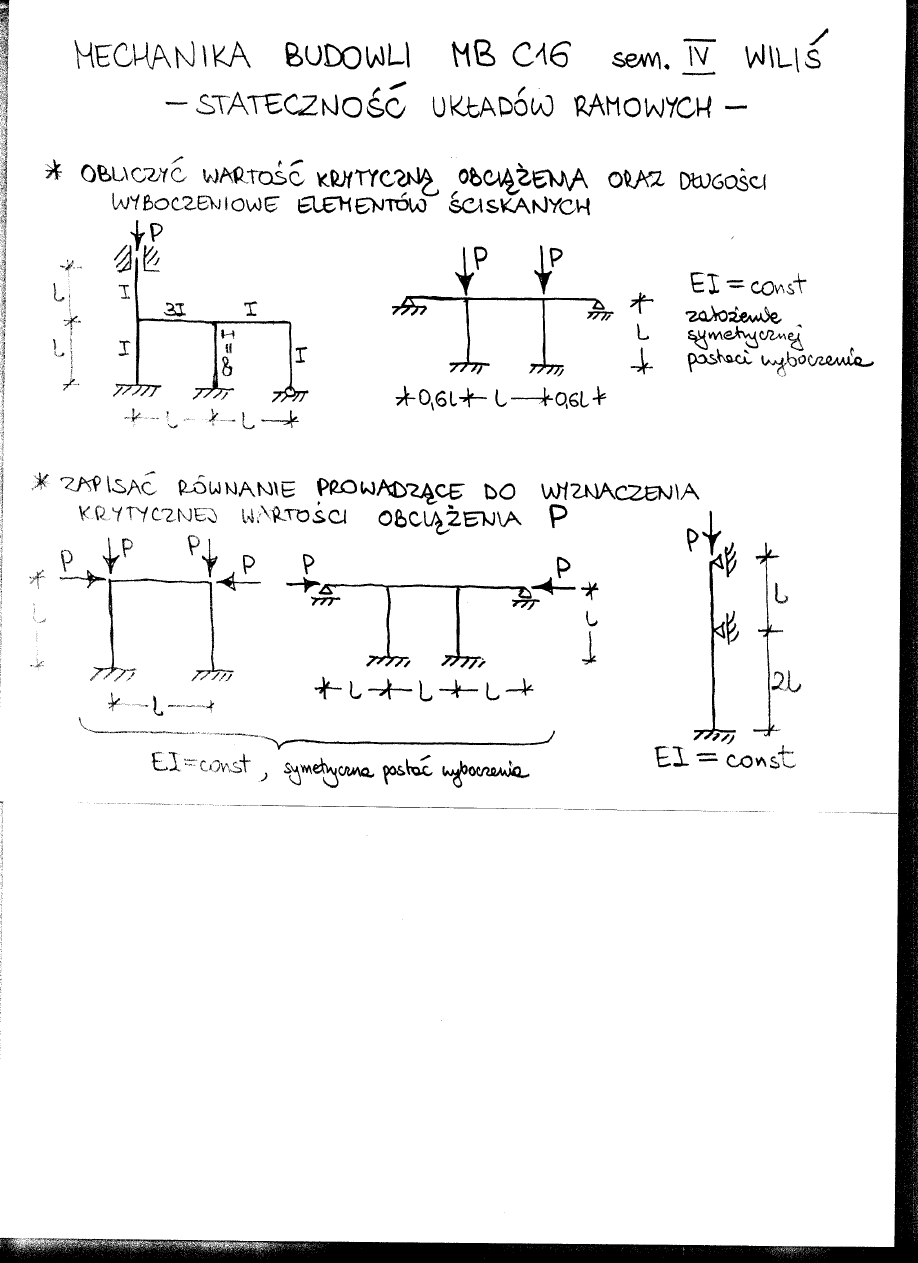 MECHANIKA BUDOWLI MB C16 sem. IV WILIŚ
— STATECZNOŚĆ UKŁADÓW RAMOWYCH —
* OBLICZYĆ WARTOŚĆ KRYTYCZNĄ OBCIĄŻENIA ORAZ DŁUGOŚCI
WYBOCZENIOWE ELEMENTÓW ŚCISKANYCH
P
L
I
3I
I
L
I
I=∞
I
L
L
P
P
L
0,6L
L
0,6L
EI = const
założenie
symetrycznej
postaci wyboczenia
* ZAPISAĆ RÓWNANIE PROWADZĄCE DO WYZNACZENIA
KRYTYCZNEJ WARTOŚCI OBCIĄŻENIA P
P
P
P
P
L
L
P
P
L
L
L
L
EI=const, symetryczna postać wyboczenia
P
L
2L
EI = const